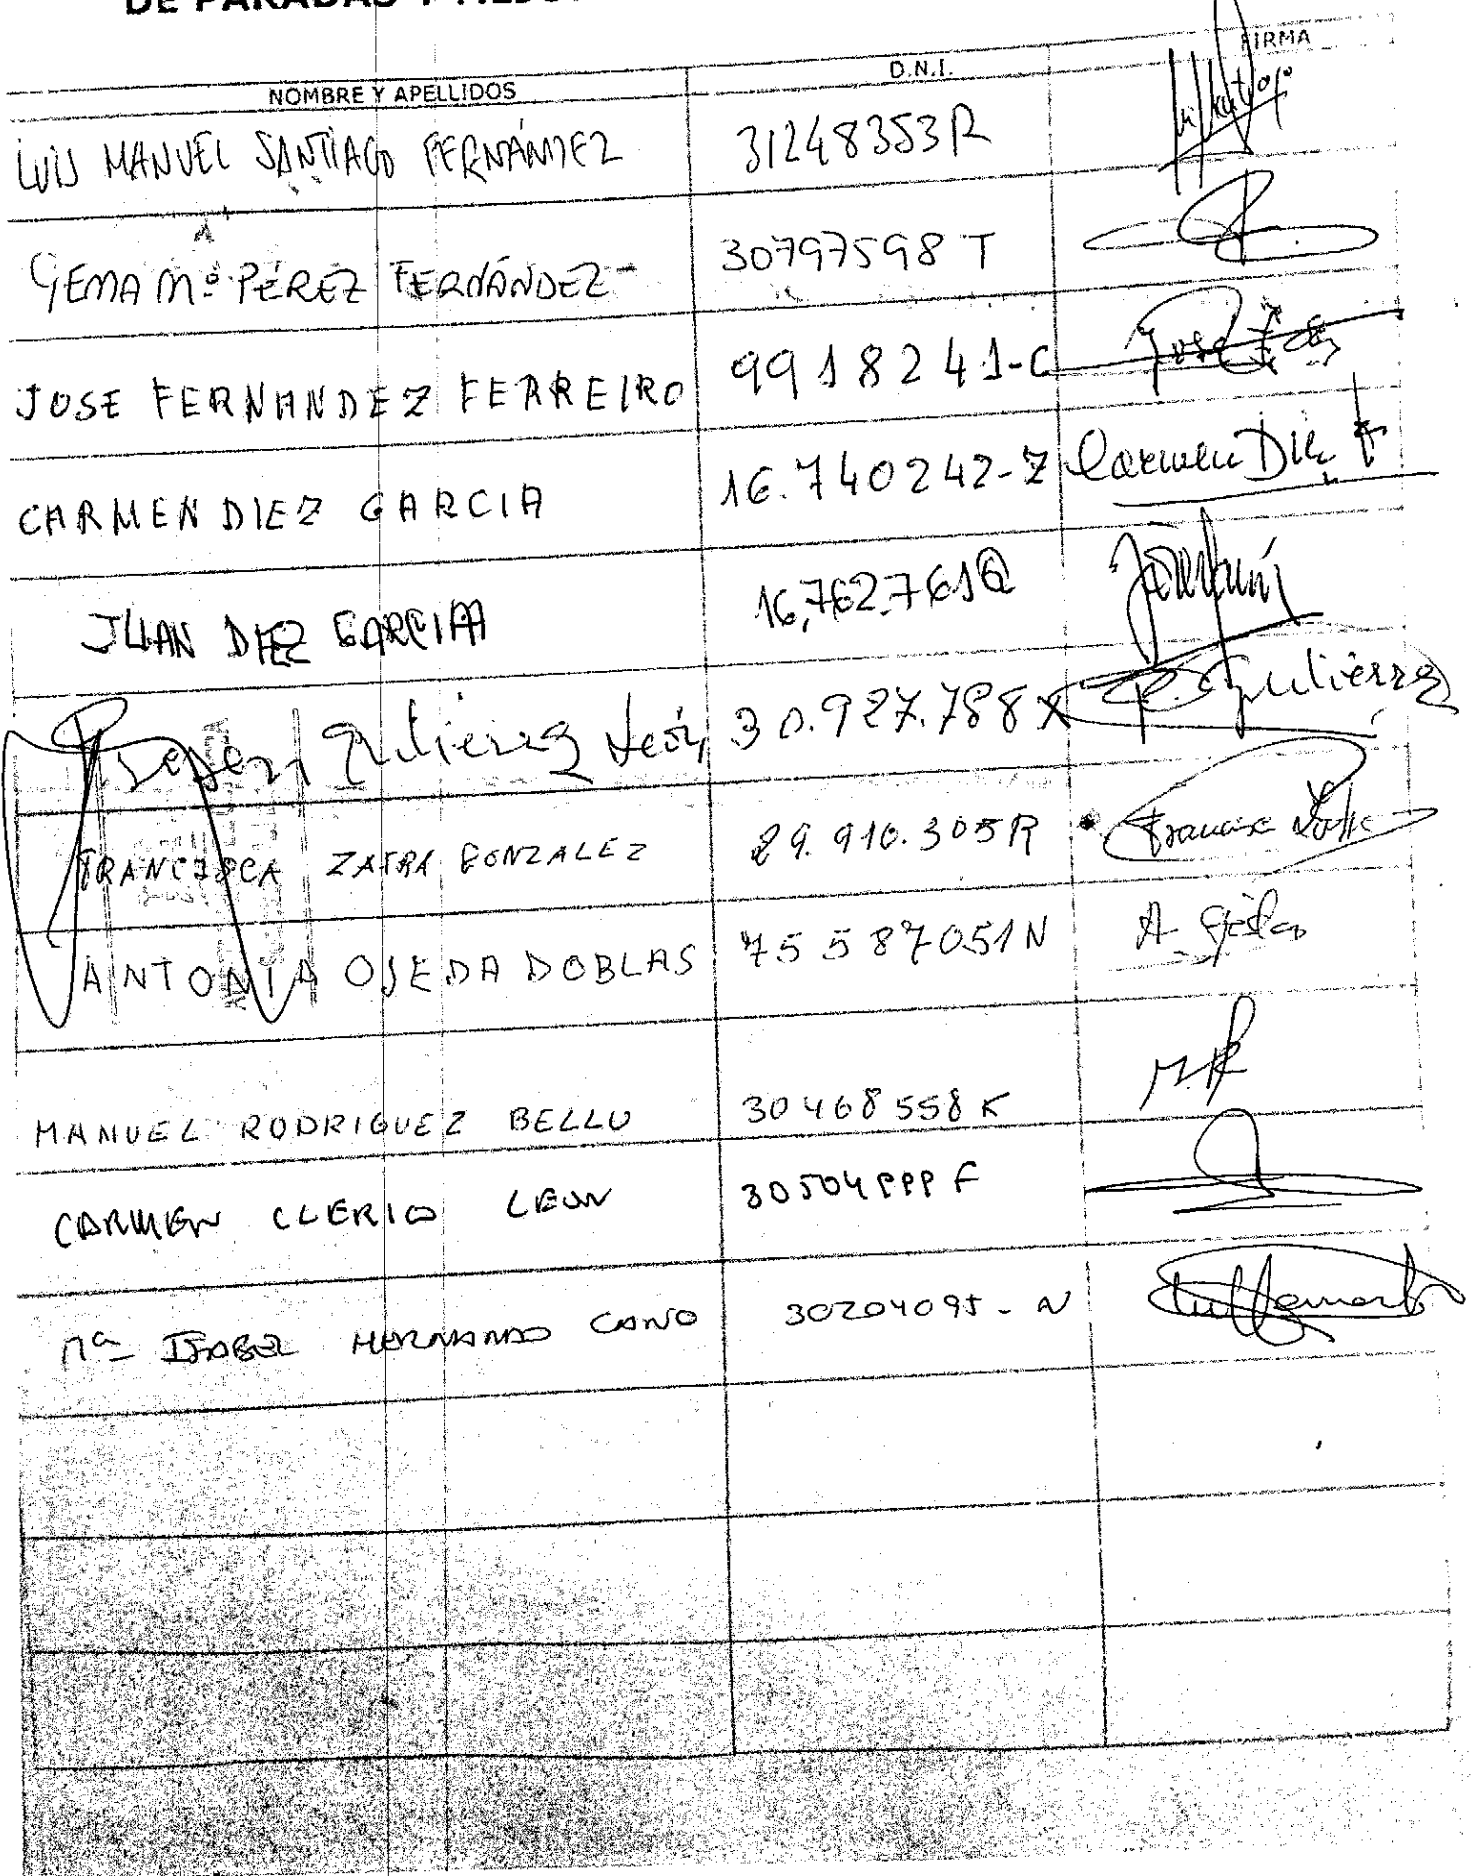 DE PARADAS Y
NOMBRE Y APELLIDOS D.N.I. FIRMA
LUIS MANUEL SANTIAGO FERNÁNDEZ 31248353R
GEMA Mª PÉREZ FERNÁNDEZ 30797598 T
JOSE FERNANDEZ FERREIRO 9918241-C José Fdez
CARMEN DIEZ GARCIA 16.740242-Z Carmen Diez
JUAN DIEZ GARCIA 16,762.761Q
Gutiérrez León 30.927.788X Gutiérrez
FRANCISCA ZAFRA GONZALEZ 29.910.305R Francisca
ANTONIA OJEDA DOBLAS 75587051N A. Ojeda
MANUEL RODRIGUEZ BELLO 30468558K M.R
CARMEN CLERIO LEON 30504PPP F
Mª ISABEL HERNANDO CANO 30204095-N